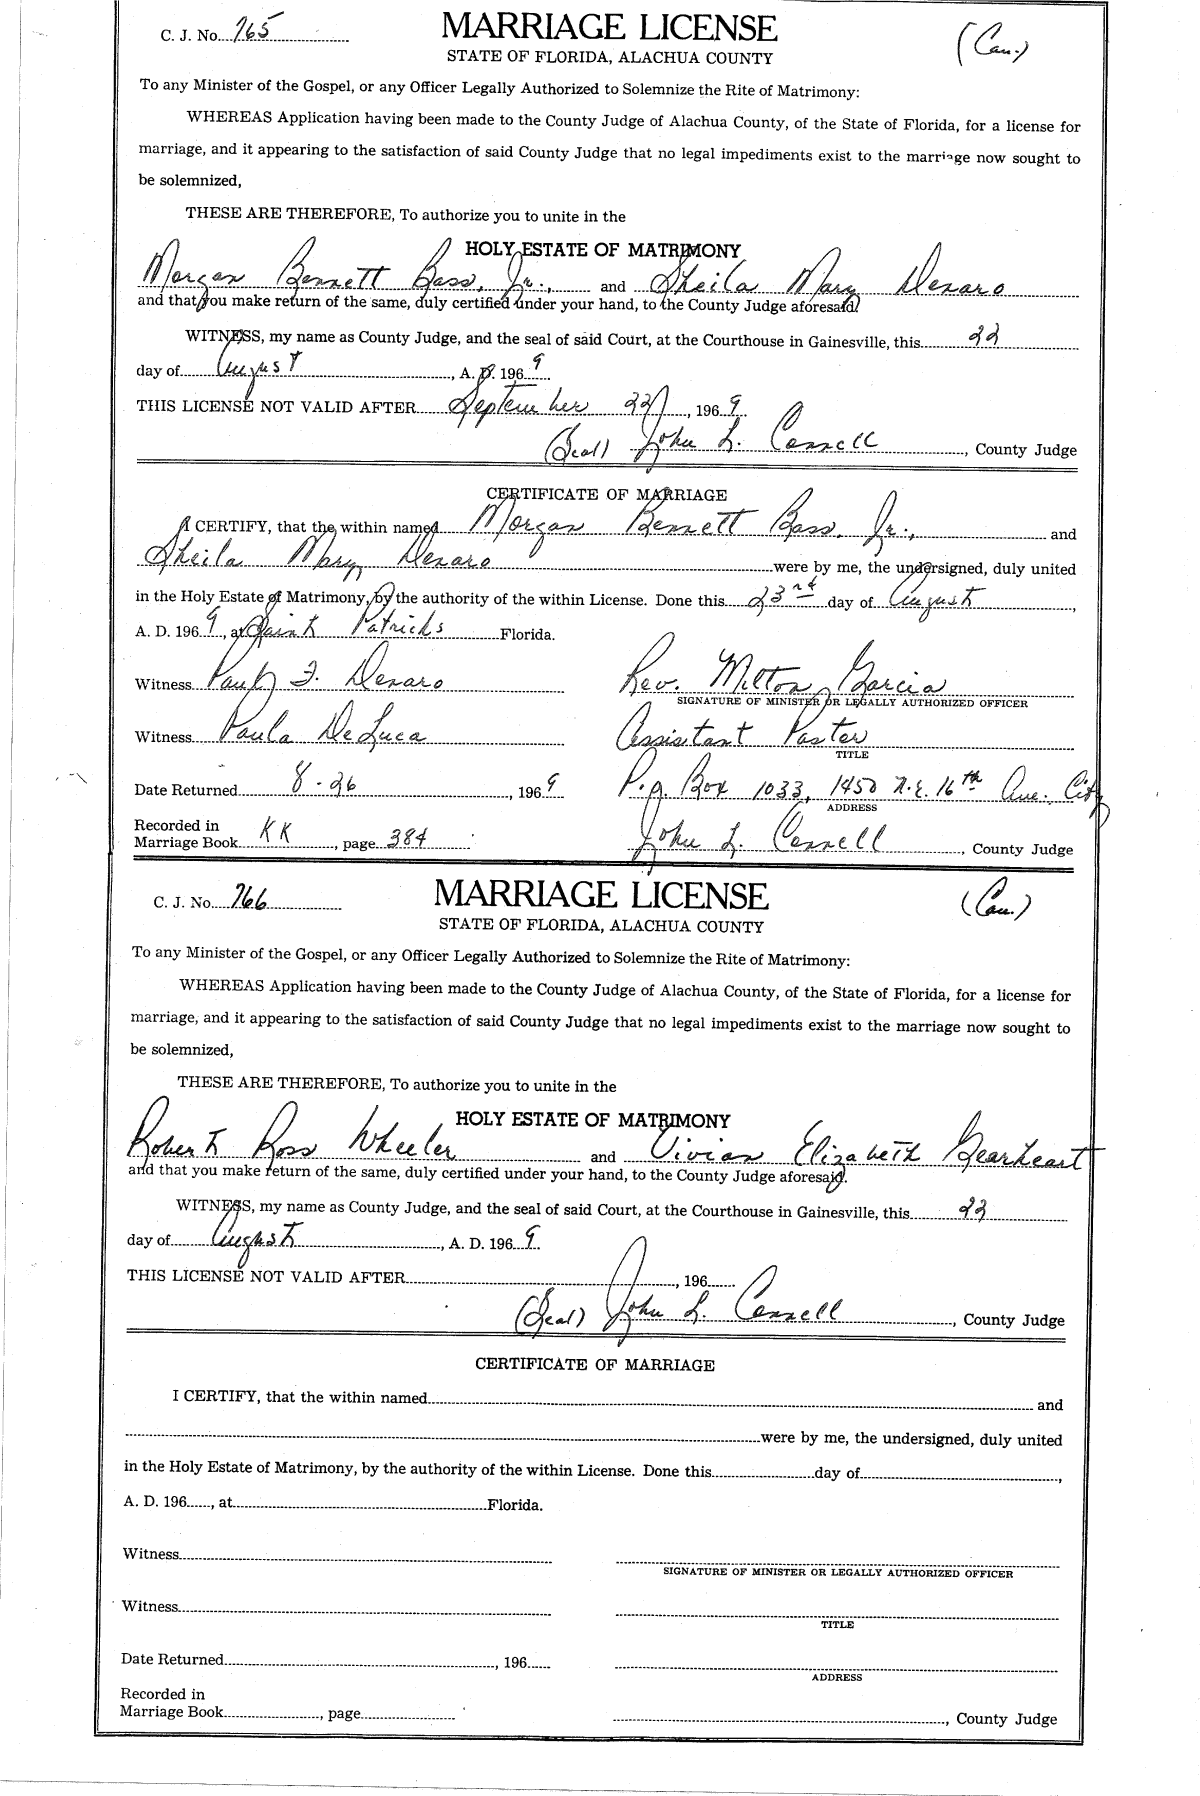 C. J. No. 765 MARRIAGE LICENSE (Cau.)
STATE OF FLORIDA, ALACHUA COUNTY
To any Minister of the Gospel, or any Officer Legally Authorized to Solemnize the Rite of Matrimony:
WHEREAS Application having been made to the County Judge of Alachua County, of the State of Florida, for a license for
marriage, and it appearing to the satisfaction of said County Judge that no legal impediments exist to the marriage now sought to
be solemnized,
THESE ARE THEREFORE, To authorize you to unite in the
HOLY ESTATE OF MATRIMONY
Morgan Bennett Bass, Jr., and Sheila Mary Denaro
and that you make return of the same, duly certified under your hand, to the County Judge aforesaid.
WITNESS, my name as County Judge, and the seal of said Court, at the Courthouse in Gainesville, this 22
day of August, A. D. 1969
THIS LICENSE NOT VALID AFTER September 22, 1969
(Seal) John L. Connell, County Judge
CERTIFICATE OF MARRIAGE
I CERTIFY, that the within named Morgan Bennett Bass, Jr., and
Sheila Mary Denaro were by me, the undersigned, duly united
in the Holy Estate of Matrimony, by the authority of the within License. Done this 23rd day of August,
A. D. 1969, at Saint Patricks Florida.
Witness Paul F. Denaro Rev. Milton Garcia
SIGNATURE OF MINISTER OR LEGALLY AUTHORIZED OFFICER
Witness Paula DeLuca Assistant Pastor
TITLE
Date Returned 8-26, 1969 P.O. Box 1033, 1450 N.E. 16th Ave. City
ADDRESS
Recorded in
Marriage Book KK, page 384 John L. Connell, County Judge
C. J. No. 766 MARRIAGE LICENSE (Cau.)
STATE OF FLORIDA, ALACHUA COUNTY
To any Minister of the Gospel, or any Officer Legally Authorized to Solemnize the Rite of Matrimony:
WHEREAS Application having been made to the County Judge of Alachua County, of the State of Florida, for a license for
marriage, and it appearing to the satisfaction of said County Judge that no legal impediments exist to the marriage now sought to
be solemnized,
THESE ARE THEREFORE, To authorize you to unite in the
HOLY ESTATE OF MATRIMONY
Robert Ross Wheeler and Vivian Elizabeth Gearheart
and that you make return of the same, duly certified under your hand, to the County Judge aforesaid.
WITNESS, my name as County Judge, and the seal of said Court, at the Courthouse in Gainesville, this 22
day of August, A. D. 1969.
THIS LICENSE NOT VALID AFTER, 196
(Seal) John L. Connell, County Judge
CERTIFICATE OF MARRIAGE
I CERTIFY, that the within named and
were by me, the undersigned, duly united
in the Holy Estate of Matrimony, by the authority of the within License. Done this day of,
A. D. 196, at Florida.
Witness
SIGNATURE OF MINISTER OR LEGALLY AUTHORIZED OFFICER
Witness
TITLE
Date Returned, 196
ADDRESS
Recorded in
Marriage Book, page, County Judge